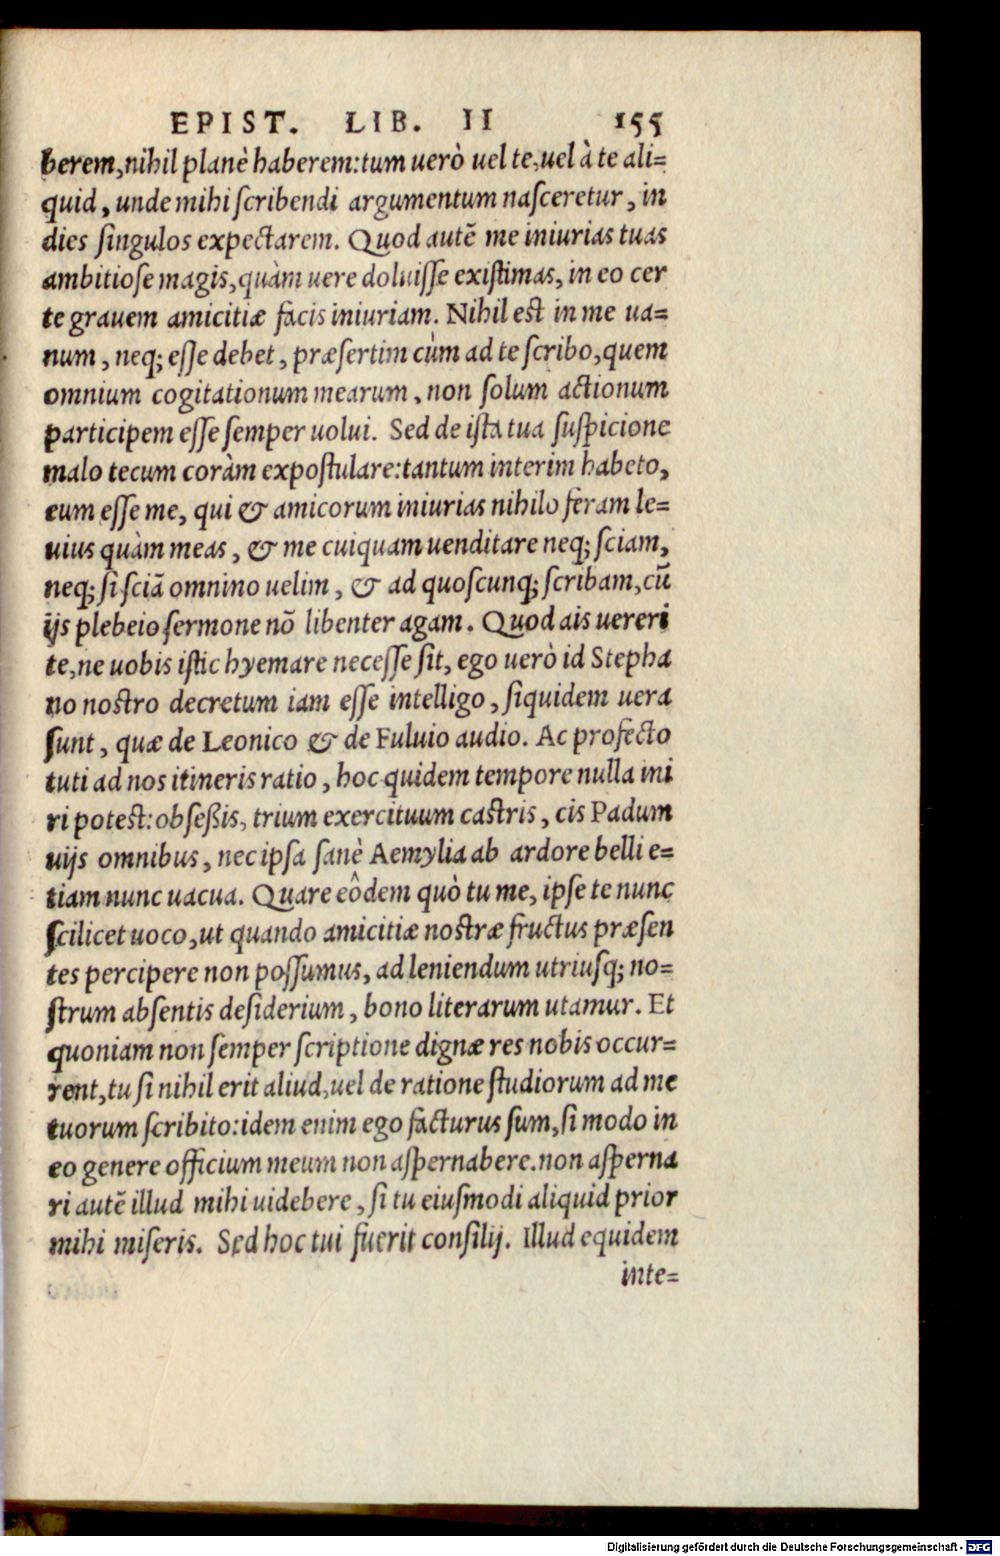 EPIST. LIB. II 155
berem, nihil planè haberem: tum uerò uel te, uel à te ali=
quid, unde mihi scribendi argumentum nasceretur, in
dies singulos expectarem. Quod autẽ me iniurias tuas
ambitiose magis, quàm uere doluisse existimas, in eo cer
te grauem amicitiæ facis iniuriam. Nihil est in me ua=
num, neq; esse debet, præsertim cùm ad te scribo, quem
omnium cogitationum mearum, non solum actionum
participem esse semper uolui. Sed de ista tua suspicione
malo tecum coràm expostulare: tantum interim habeto,
eum esse me, qui & amicorum iniurias nihilo feram le=
uius quàm meas, & me cuiquam uenditare neq; sciam,
neq; si sciã omnino uelim, & ad quoscunq; scribam, cũ
ijs plebeio sermone nõ libenter agam. Quod ais uereri
te, ne uobis istic hyemare necesse sit, ego uerò id Stepha
no nostro decretum iam esse intelligo, siquidem uera
sunt, quæ de Leonico & de Fuluio audio. Ac profecto
tuti ad nos itineris ratio, hoc quidem tempore nulla ini
ri potest: obseßis, trium exercituum castris, cis Padum
uijs omnibus, nec ipsa sanè Aemylia ab ardore belli e=
tiam nunc uacua. Quare eôdem quò tu me, ipse te nunc
scilicet uoco, ut quando amicitiæ nostræ fructus præsen
tes percipere non possumus, ad leniendum utriusq; no=
strum absentis desiderium, bono literarum utamur. Et
quoniam non semper scriptione dignæ res nobis occur=
rent, tu si nihil erit aliud, uel de ratione studiorum ad me
tuorum scribito: idem enim ego facturus sum, si modo in
eo genere officium meum non aspernabere. non asperna
ri autẽ illud mihi uidebere, si tu eiusmodi aliquid prior
mihi miseris. Sed hoc tui fuerit consilij. Illud equidem
inte=
Digitalisierung gefördert durch die Deutsche Forschungsgemeinschaft - DFG